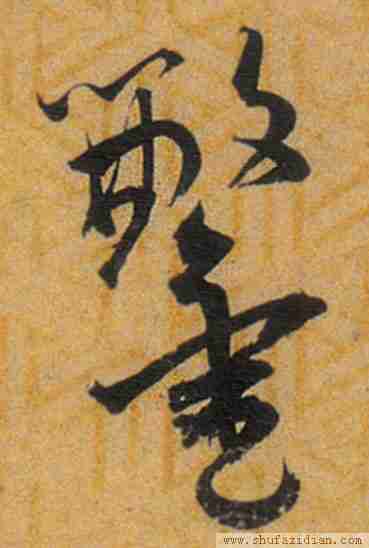 鼈
www.shufazidian.com